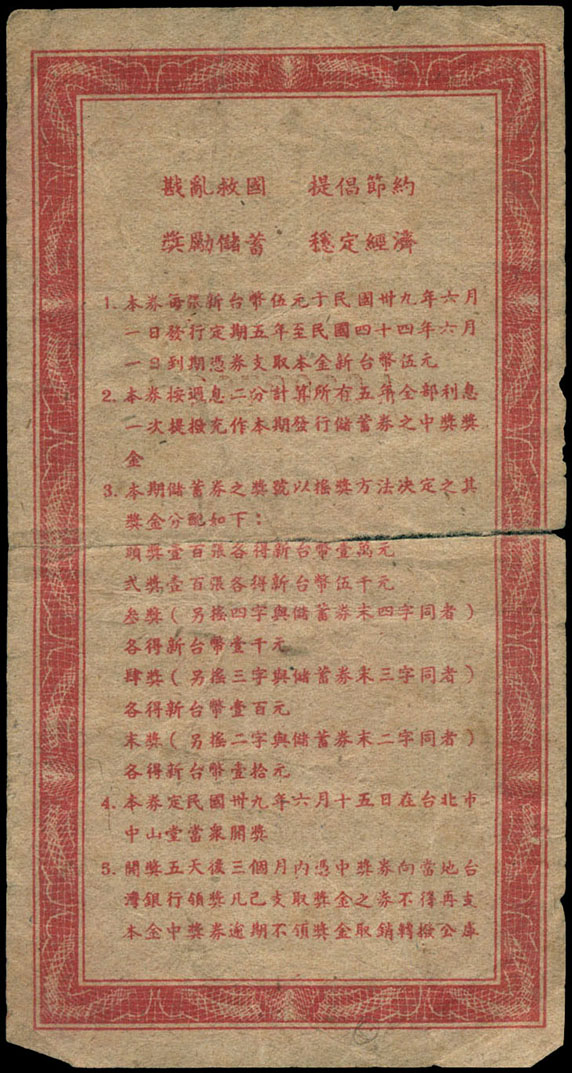 戡亂救國　提倡節約
獎勵儲蓄　穩定經濟
1. 本券每張新台幣伍元于民國卅九年六月
一日發行定期五年至民國四十四年六月
一日到期憑券支取本金新台幣伍元
2. 本券按週息二分計算所有五年全部利息
一次提撥充作本期發行儲蓄券之中獎獎
金
3. 本期儲蓄券之獎號以搖獎方法決定之其
獎金分配如下：
頭獎壹百張各得新台幣壹萬元
弍獎壹百張各得新台幣伍千元
叁獎（另搖四字與儲蓄券末四字同者）
各得新台幣壹千元
肆獎（另搖三字與儲蓄券末三字同者）
各得新台幣壹百元
末獎（另搖二字與儲蓄券末二字同者）
各得新台幣壹拾元
4. 本券定民國卅九年六月十五日在台北市
中山堂當衆開獎
5. 開獎五天後三個月內憑中獎券向當地台
灣銀行領獎凡已支取獎金之券不得再支
本金中獎券逾期不領獎金取銷轉撥公庫